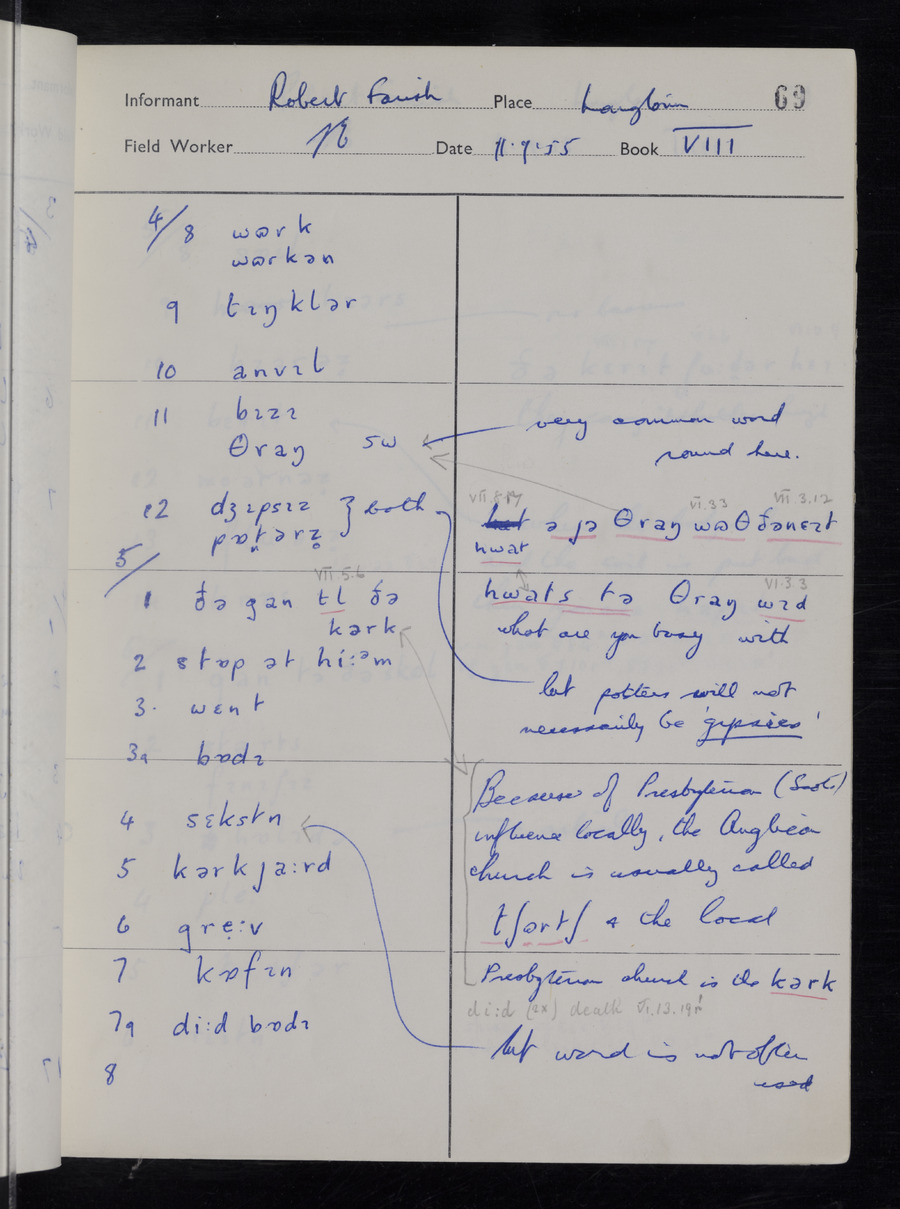 Informant Robert Farish Place Longtown 69
Field Worker Date 11·9·55 Book VIII
4/8 wɒrk
wɒrkən
9 tɪŋklər
10 anvɪl
11 bɪzɪ
θraŋ sw
very common word
round here.
12 dʒɪpsɪz } both
pɒtərz̥
VII.8.17 VI.33 VII.3.12
ə jə θraŋ wɒθ ðənɛɪt
hwat
5/
VII.5.6
1 ðə gan tl ðə
kərk
VI.33
hwats tə θraŋ wɪd
what are you busy with
2 stɒp ət hí:ᵊm
but potters will not
necessarily be 'gypsies'
3. wɛnt
3a bɒdɪ
Because of Presbyterian (Scots)
influence locally, the Anglican
church is usually called
tʃərtʃ & the local
Presbyterian church is the kərk
4 sɛkstn
5 kərkja:rd
6 gre̞:v
7 kɒfɪn
di:d (2x) death VI.13.19
7a di:d bɒdɪ
but word is not often
used
8